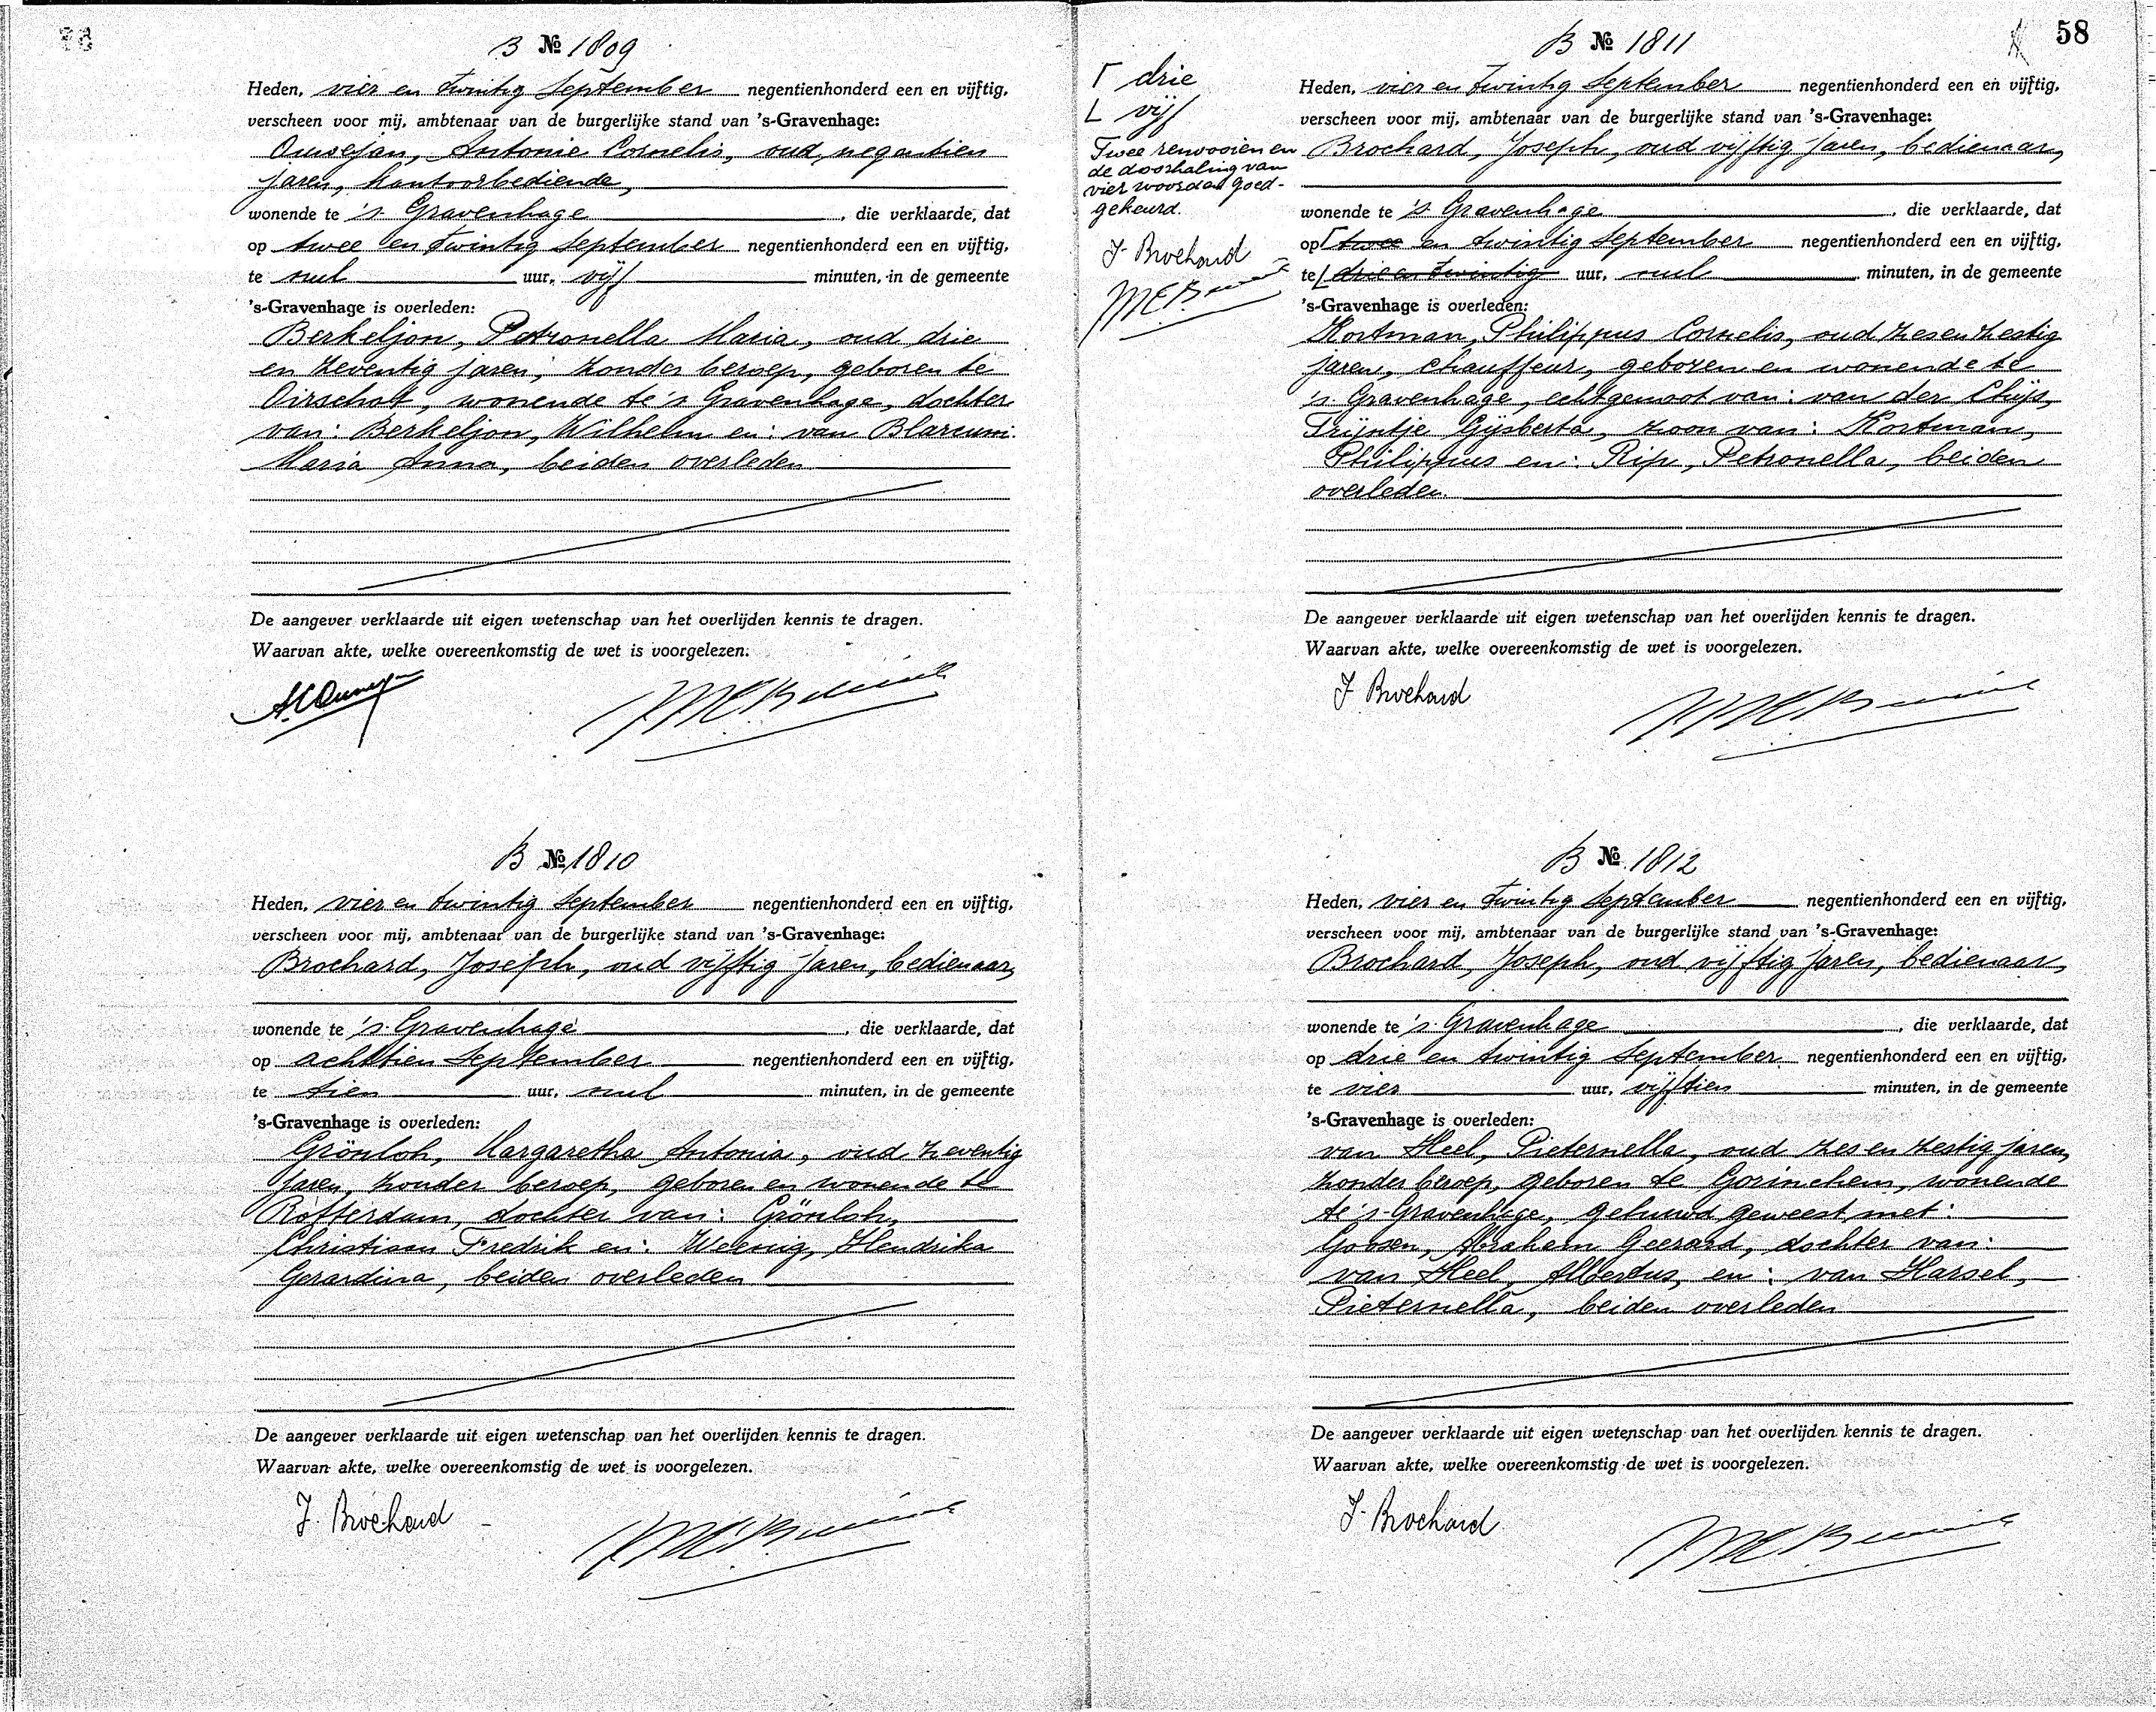 B № 1809
Heden, vier en twintig September negentienhonderd een en vijftig,
verscheen voor mij, ambtenaar van de burgerlijke stand van 's-Gravenhage:
Antonie Cornelis, oud negentien
jaren, kantoorbediende,
wonende te 's Gravenhage, die verklaarde, dat
op twee en twintig September negentienhonderd een en vijftig,
te nul uur, vijf minuten, in de gemeente
's-Gravenhage is overleden:
Berkeljon, Petronella Maria, oud drie
en zeventig jaren, zonder beroep, geboren te
Oirschot, wonende te 's Gravenhage, dochter
van: Berkeljon, Wilhelm en: van Blarcum.
Maria Anna, beiden overleden
De aangever verklaarde uit eigen wetenschap van het overlijden kennis te dragen.
Waarvan akte, welke overeenkomstig de wet is voorgelezen.
B № 1810
Heden, vier en twintig September negentienhonderd een en vijftig,
verscheen voor mij, ambtenaar van de burgerlijke stand van 's-Gravenhage:
Brochard, Joseph, oud vijftig jaren, bedienaar,
wonende te 's Gravenhage, die verklaarde, dat
op achttien September negentienhonderd een en vijftig,
te tien uur, nul minuten, in de gemeente
's-Gravenhage is overleden:
Grönloh, Margaretha Antonia, oud zeventig
jaren, zonder beroep, geboren en wonende te
Rotterdam, dochter van: Grönloh,
Christiaan Fredrik en: Weenig, Hendrika
Gerardina, beiden overleden
De aangever verklaarde uit eigen wetenschap van het overlijden kennis te dragen.
Waarvan akte, welke overeenkomstig de wet is voorgelezen.
J. Brochard
58
B № 1811
Γ drie
L vijf
Twee renvooien en
de doorhaling van
vier woorden goed-
gekeurd.
J. Brochard
Heden, vier en twintig September negentienhonderd een en vijftig,
verscheen voor mij, ambtenaar van de burgerlijke stand van 's-Gravenhage:
Brochard, Joseph, oud vijftig jaren, bedienaar,
wonende te 's Gravenhage, die verklaarde, dat
op Γ twee en twintig September negentienhonderd een en vijftig,
te L drie en twintig uur, nul minuten, in de gemeente
's-Gravenhage is overleden:
Kortman, Philippus Cornelis, oud zes en zestig
jaren, chauffeur, geboren en wonende te
's Gravenhage, echtgenoot van: van der Chijs,
Trijntje Gijsberta, zoon van: Kortman,
Philippus en: Rip, Petronella, beiden
overleden.
De aangever verklaarde uit eigen wetenschap van het overlijden kennis te dragen.
Waarvan akte, welke overeenkomstig de wet is voorgelezen.
J Brochard
B № 1812
Heden, vier en twintig September negentienhonderd een en vijftig,
verscheen voor mij, ambtenaar van de burgerlijke stand van 's-Gravenhage:
Brochard, Joseph, oud vijftig jaren, bedienaar,
wonende te 's Gravenhage, die verklaarde, dat
op drie en twintig September negentienhonderd een en vijftig,
te vier uur, vijftien minuten, in de gemeente
's-Gravenhage is overleden:
van Heel, Pieternella, oud zes en zestig jaren,
zonder beroep, geboren te Gorinchem, wonende
te 's-Gravenhage, gehuwd geweest met:
Goosen, Abraham Geerard, dochter van:
van Heel, Albertus, en: van Harsel,
Pieternella, beiden overleden
De aangever verklaarde uit eigen wetenschap van het overlijden kennis te dragen.
Waarvan akte, welke overeenkomstig de wet is voorgelezen.
J. Brochard